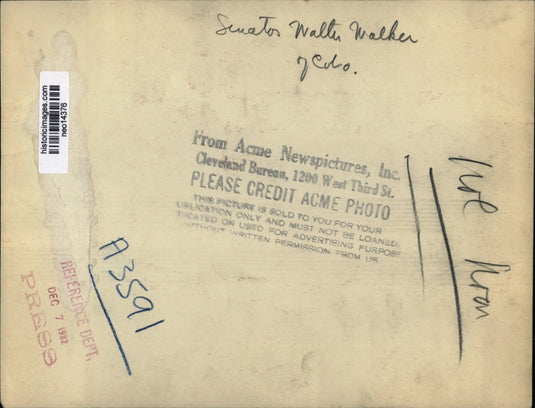 Senator Walter Walker
of Colo.
historicimages.com
neo14376
From Acme Newspictures, Inc.
Cleveland Bureau, 1200 West Third St.
PLEASE CREDIT ACME PHOTO
THIS PICTURE IS SOLD TO YOU FOR YOUR
UBLICATION ONLY AND MUST NOT BE LOANED,
DICATED OR USED FOR ADVERTISING PURPOSE
WITHOUT WRITTEN PERMISSION FROM US
A3591
REFERENCE DEPT.
DEC 7 1932
PRESS